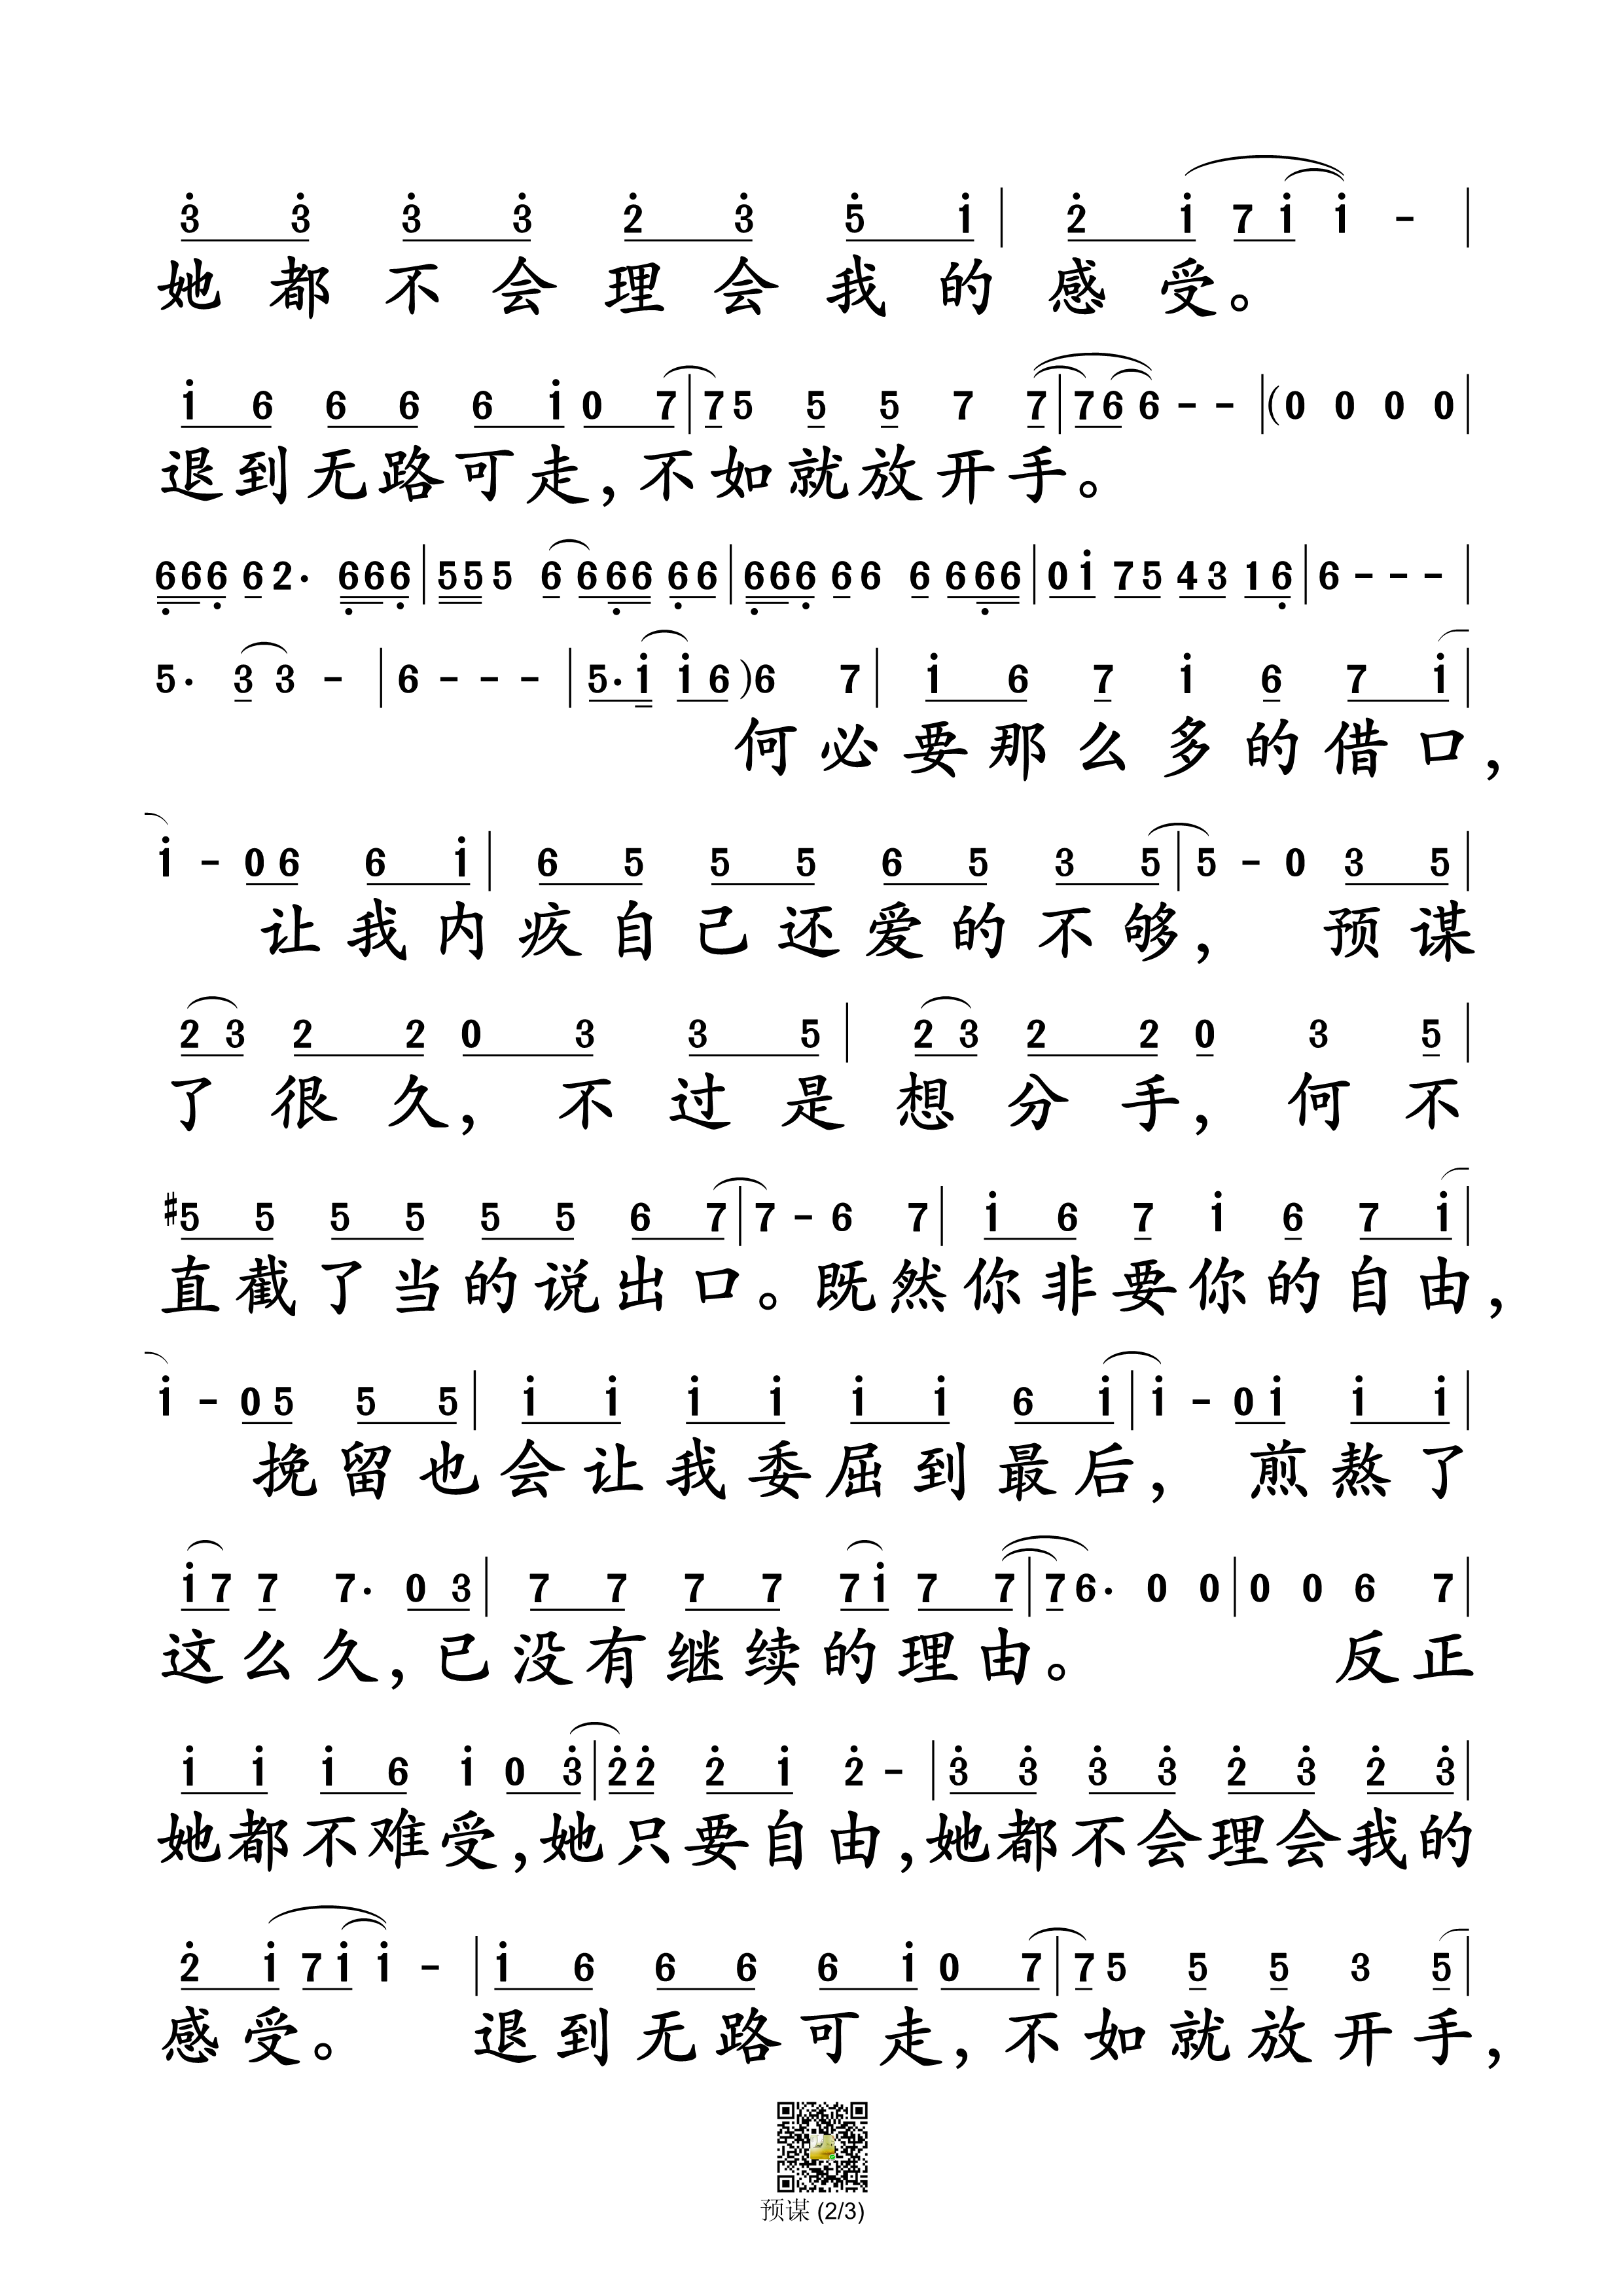 3̇ 3̇ 3̇ 3̇ 2̇ 3̇ 5̇ 1̇ | 2̇ 1̇ 7 1̇ 1̇ - |
她都不会理会我的感受。
1̇ 6 6 6 6 1̇ 0 7 | 7 5 5 5 7 7 | 7 6 6 - - | (0 0 0 0 |
退到无路可走,不如就放开手。
6̣ 6 6̣ 6 2· 6̣ 6 6̣ | 5 5 5 6 6 6̣ 6 6̣ 6 | 6̣ 6 6̣ 6 6 6 6 6̣ 6 | 0 1̇ 7 5 4 3 1 6̣ | 6 - - - |
5· 3 3 - | 6 - - - | 5· 1̇ 1̇ 6 ) 6 7 | 1̇ 6 7 1̇ 6 7 1̇ |
何必要那么多的借口,
1̇ - 0 6 6 1̇ | 6 5 5 5 6 5 3 5 | 5 - 0 3 5 |
让我内疚自己还爱的不够, 预谋
2 3 2 2 0 3 3 5 | 2 3 2 2 0 3 5 |
了很久, 不过是想分手, 何不
#5 5 5 5 5 5 6 7 | 7 - 6 7 | 1̇ 6 7 1̇ 6 7 1̇ |
直截了当的说出口。既然你非要你的自由,
1̇ - 0 5 5 5 | 1̇ 1̇ 1̇ 1̇ 1̇ 1̇ 6 1̇ | 1̇ - 0 1̇ 1̇ 1̇ |
挽留也会让我委屈到最后, 煎熬了
1̇ 7 7 7· 0 3 | 7 7 7 7 7 1̇ 7 7 | 7 6· 0 0 | 0 0 6 7 |
这么久,已没有继续的理由。 反正
1̇ 1̇ 1̇ 6 1̇ 0 3̇ | 2̇ 2̇ 2̇ 1̇ 2̇ - | 3̇ 3̇ 3̇ 3̇ 2̇ 3̇ 2̇ 3̇ |
她都不难受,她只要自由,她都不会理会我的
2̇ 1̇ 7 1̇ 1̇ - | 1̇ 6 6 6 6 1̇ 0 7 | 7 5 5 5 3 5 |
感受。 退到无路可走,不如就放开手,
预谋 (2/3)